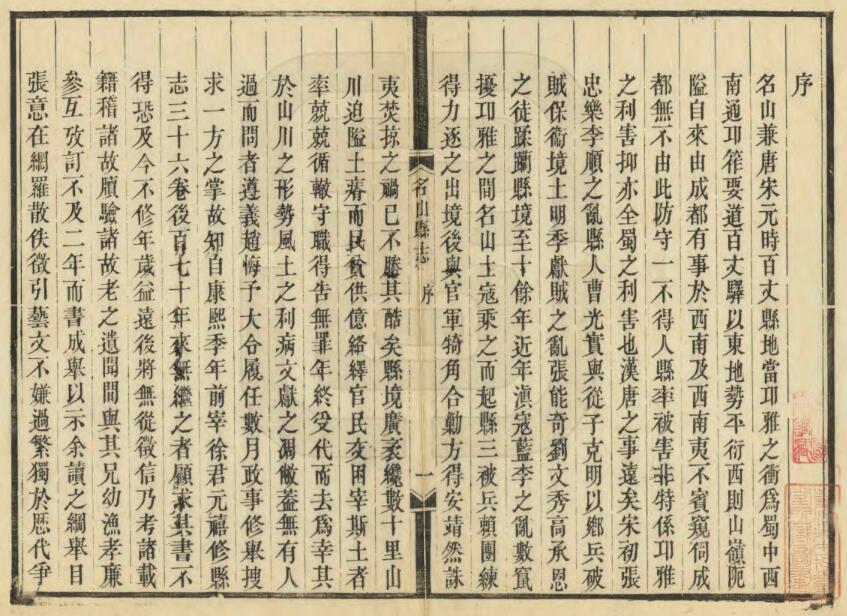 序
名山兼唐宋元時百丈縣地當邛雅之衝爲蜀中西
南通邛筰要道百丈驛以東地勢平衍西則山嶺阨
隘自來由成都有事於西南及西南夷不賓窺伺成
都無不由此防守一不得人縣率被害非特係邛雅
之利害抑亦全蜀之利害也漢唐之事遠矣宋初張
忠樂李順之亂縣人曹光實與從子克明以鄉兵破
賊保衞境土明季獻賊之亂張能奇劉文秀高承恩
之徒蹂躪縣境至十餘年近年滇寇藍李之亂數竄
擾邛雅之間名山土寇乘之而起縣三被兵賴團練
得力逐之出境後與官軍犄角合勦方得安靖然誅
名山縣志 序 一
夷焚掠之禍已不勝其酷矣縣境廣袤纔數十里山
川迫隘土瘠而民貧供億絡繹官民交困宰斯土者
率兢兢循轍守職得告無罪年終受代而去爲幸其
於山川之形勢風土之利病文獻之凋敝蓋無有人
過而問者遵義趙悔予大令履任數月政事修舉搜
求一方之掌故知自康熙季年前宰徐君元禧修縣
志三十六卷後百七十年來無繼之者顧求其書不
得恐及今不修年歲益遠後將無從徵信乃考諸載
籍稽諸故牘驗諸故老之遺聞間與其兄幼漁孝廉
參互攷訂不及二年而書成舉以示余讀之綱舉目
張意在網羅散佚徵引藝文不嫌過繁獨於歷代爭